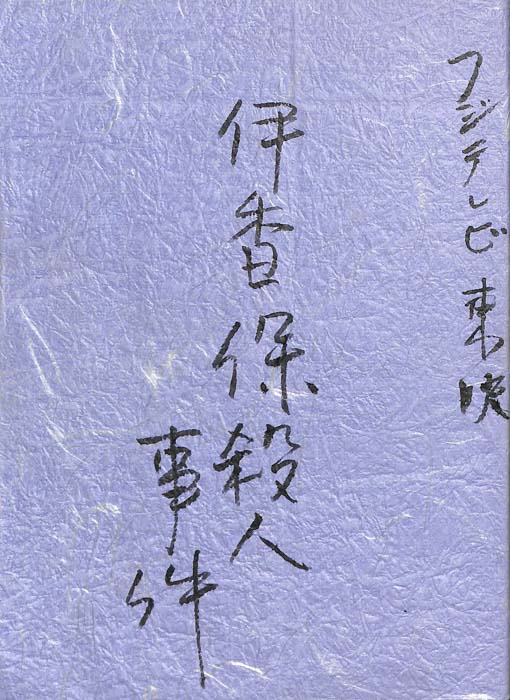 フジテレビ 東映
伊香保殺人
事件